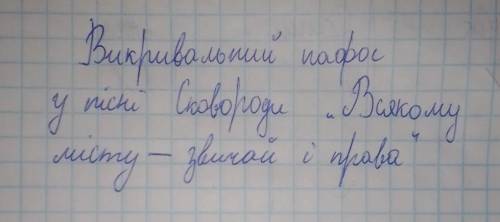 Викривальний пафос
у пісні Сковороди „Всякому
місту — звичай і права"